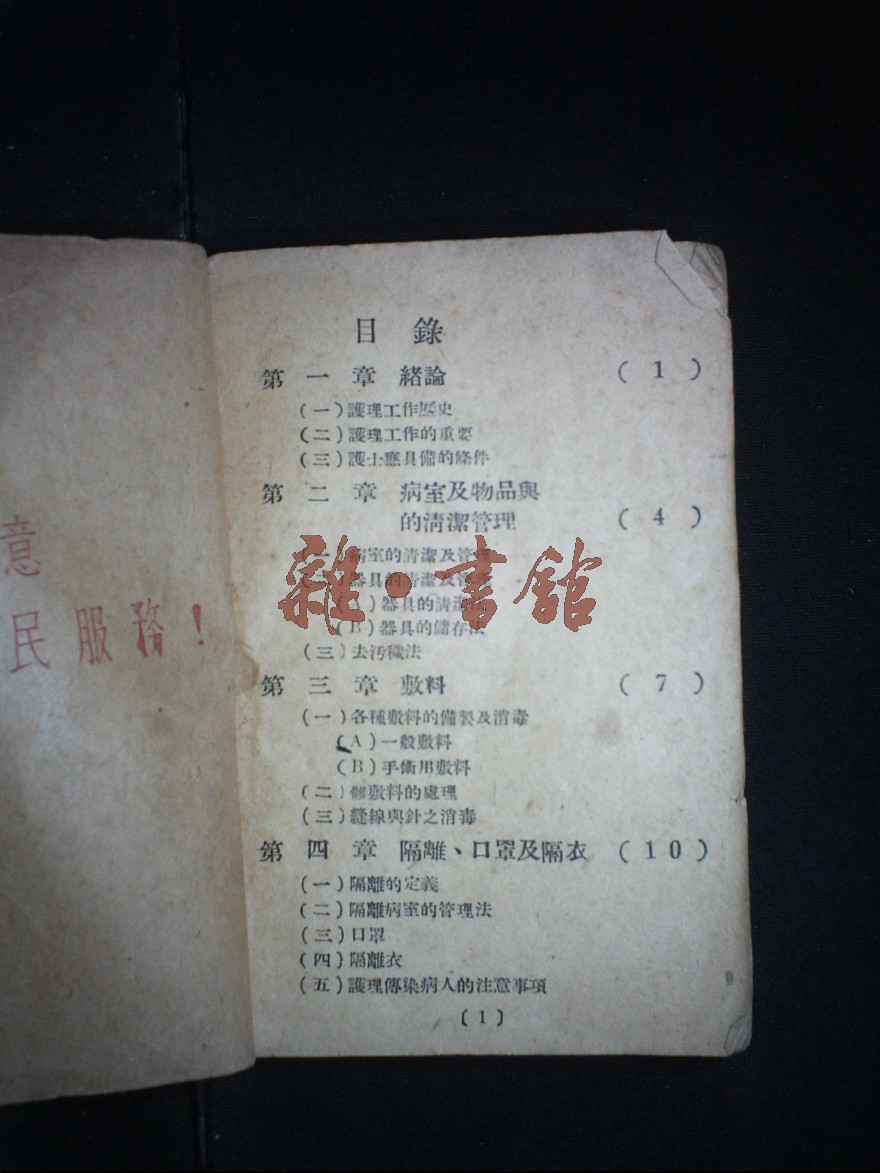 意
民服務！
目錄
第一章 緒論 (1)
(一)護理工作歷史
(二)護理工作的重要
(三)護士應具備的條件
第二章 病室及物品與
的清潔管理 (4)
(一)病室的清潔及管理
(二)器具的清潔及管理
(A)器具的清潔法
(B)器具的儲存法
(三)去污穢法
第三章 敷料 (7)
(一)各種敷料的備製及消毒
(A)一般敷料
(B)手術用敷料
(二)敷料的處理
(三)縫線與針之消毒
第四章 隔離、口罩及隔衣 (10)
(一)隔離的定義
(二)隔離病室的管理法
(三)口罩
(四)隔離衣
(五)護理傳染病人的注意事項
(1)
雜·書館